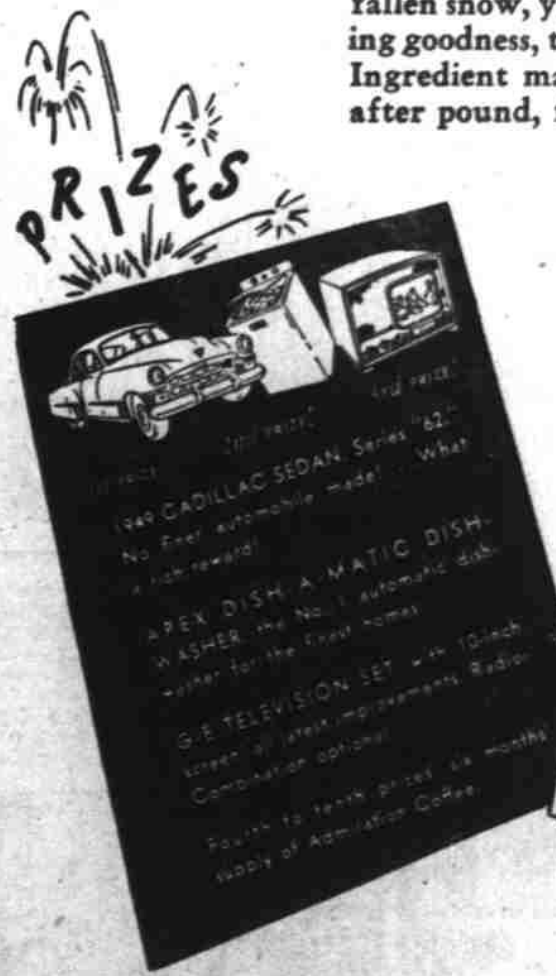 fallen snow, y
ing goodness, t
Ingredient ma
after pound,
PRIZES
1st PRIZE
2nd PRIZE
3rd PRIZE
1949 CADILLAC SEDAN, Series "62."
No finer automobile made! What
a rich reward!
APEX DISH-A-MATIC DISH-
WASHER, the No. 1 automatic dish-
washer for the finest homes.
G.E. TELEVISION SET with 10-inch
screen of latest improvements. Radio-
Combination optional.
Fourth to tenth prizes, six months'
supply of Admiration Coffee.